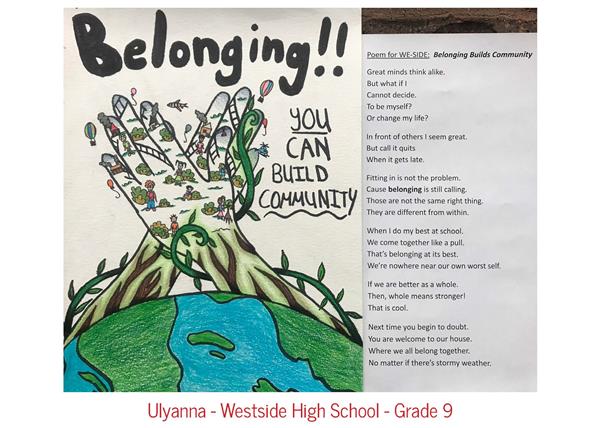 Belonging!!
YOU
CAN
BUILD
COMMUNITY
Poem for WE-SIDE: Belonging Builds Community
Great minds think alike.
But what if I
Cannot decide.
To be myself?
Or change my life?
In front of others I seem great.
But call it quits
When it gets late.
Fitting in is not the problem.
Cause belonging is still calling.
Those are not the same right thing.
They are different from within.
When I do my best at school.
We come together like a pull.
That's belonging at its best.
We're nowhere near our own worst self.
If we are better as a whole.
Then, whole means stronger!
That is cool.
Next time you begin to doubt.
You are welcome to our house.
Where we all belong together.
No matter if there's stormy weather.
Ulyanna - Westside High School - Grade 9